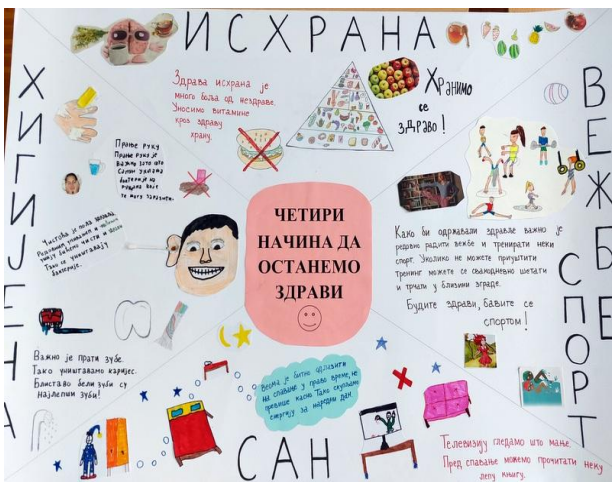 ИСХРАНА
Здрава исхрана је
много боља од нездраве.
Уносимо витамине
кроз здраву
храну.
Хранимо
се
здраво!
ХИГИЈЕНА
Прање руку
Прање руку је
важно зато што
које
Чистоћа је пола здравља.
Тако се уништавају
бактерије.
Важно је прати зубе.
Тако уништавамо каријес.
Блиставо бели зуби су
најлепши зуби!
ЧЕТИРИ
НАЧИНА ДА
ОСТАНЕМО
ЗДРАВИ
ВЕЖБЕ
СПОРТ
Како би одржавали здравље важно је
редовно радити вежбе и тренирати неки
спорт. Уколико не можете приуштити
тренинг можете се свакодневно шетати
и трчати у близини зграде.
Будите здрави, бавите се
спортом!
Веома је битно одлазити
на спавање у право време, не
превише касно. Тако скупљамо
енергију за наредни дан.
САН
Телевизију гледамо што мање.
Пред спавање можемо прочитати неку
лепу књигу.